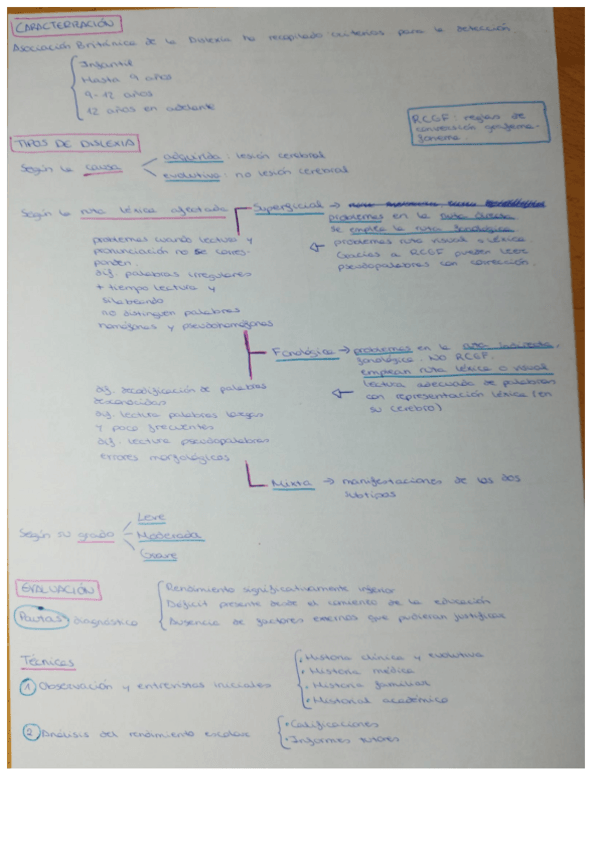 CARACTERIZACIÓN
Asociación Británica de la Dislexia ha recopilado criterios para la detección
Infantil
Hasta 9 años
9-12 años
12 años en adelante
RCGF: reglas de
conversión grafema-
fonema.
TIPOS DE DISLEXIA
Según la causa
adquirida: lesión cerebral
evolutiva: no lesión cerebral
Según la ruta léxica afectada
Superficial →
problemas en la ruta directa
se emplea la ruta fonológica
problemas ruta visual o léxica
Gracias a RCGF pueden leer
pseudopalabras con corrección.
problemas cuando lectura y
pronunciación no se corres-
ponden.
dif. palabras irregulares
+ tiempo lectura y
silabeando
no distinguen palabras
homófonas y pseudohomófonas
Fonológica → problemas en la ruta indirecta,
fonológica. NO RCGF.
emplean ruta léxica o visual
lectura adecuada de palabras
con representación léxica (en
su cerebro)
dif. decodificación de palabras
desconocidas
dif. lectura palabras largas
y poco frecuentes
dif. lectura pseudopalabras
errores morfológicos
Mixta → manifestaciones de los dos
subtipos
Según su grado
Leve
Moderada
Grave
EVALUACIÓN
Pautas diagnóstico
Rendimiento significativamente inferior
Déficit presente desde el comienzo de la educación
Ausencia de factores externos que pudieran justificar
Técnicas
1 Observación y entrevistas iniciales
• Historia clínica y evolutiva
• Historia médica
• Historia familiar
• Historial académico
2 Análisis del rendimiento escolar
• Calificaciones
• Informes tutores